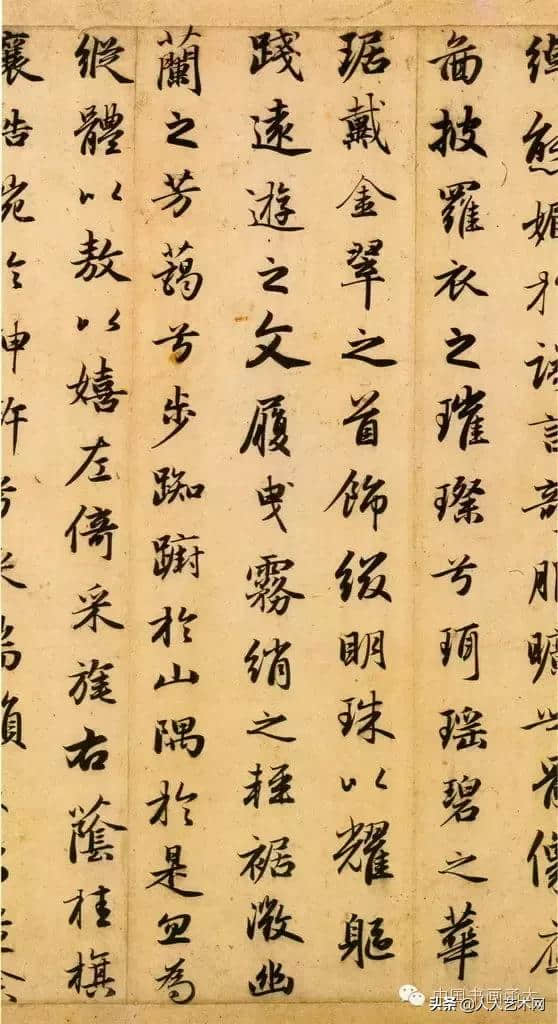 態媚於語言奇服曠世骨像應
圖披羅衣之璀璨兮珥瑤碧之華
琚戴金翠之首飾綴明珠以耀軀
踐遠遊之文履曳霧綃之輕裾微幽
蘭之芳藹兮步踟躕於山隅於是忽焉
縱體以敖以嬉左倚采旄右蔭桂旗
中国书画
头条@人人艺术网